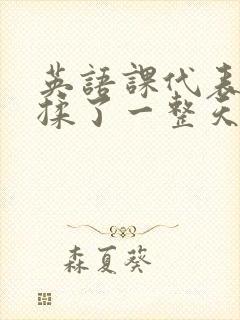 英語課代表
揉了一整天
森夏葵